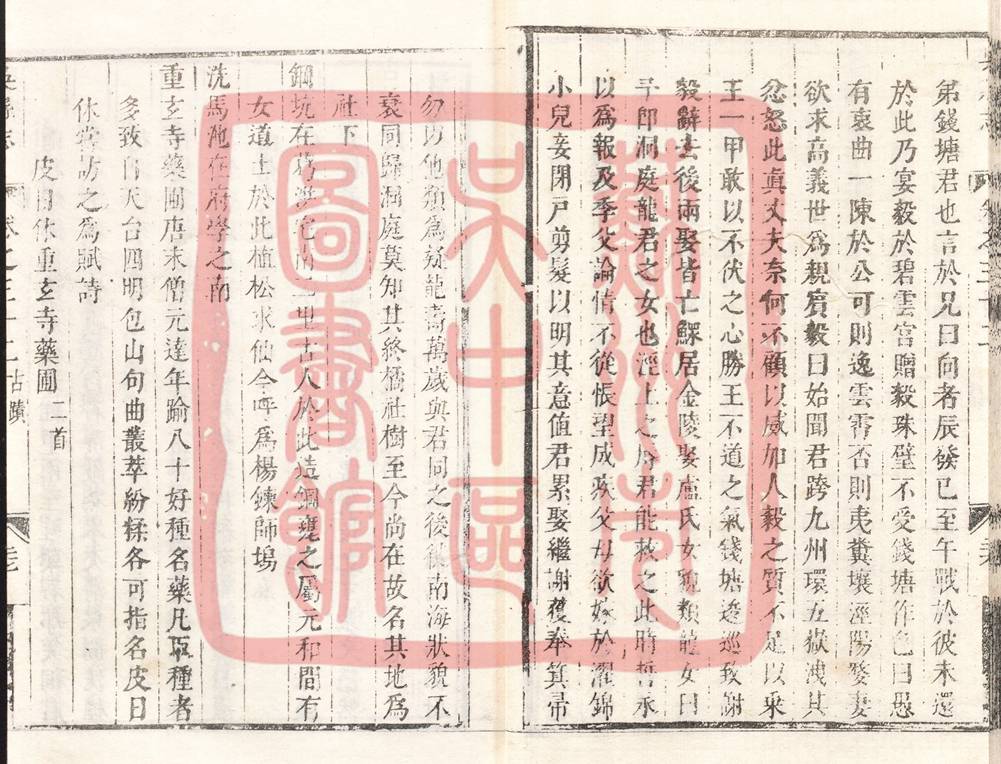 弟錢塘君也言於兄曰向者辰發巳至午戰於彼未還
於此乃宴毅於碧雲宮贈毅珠璧不受錢塘作色曰愚
有衷曲一陳於公可則逸雲霄否則夷糞壤涇陽嫠妻
欲求高義世爲親賔毅曰始聞君跨九州環五嶽洩其
忿怒此眞丈夫奈何不顧以威加人毅之質不足以乘
王一甲敢以不伏之心勝王不道之氣錢塘逡巡致謝
毅辭去後兩娶皆亡鰥居金陵娶盧氏女貌類龍女曰
予即洞庭龍君之女也涇上之辱君能救之此時誓永
以爲報及季父論情不從悵望成疾父母欲嫁於濯錦
小兒妾閉戶剪髮以明其意值君累娶繼謝獲奉箕帚
勿以他類爲疑龍壽萬歲與君同之後徙南海狀貌不
衰同歸洞庭莫知其終橘社樹至今尚在故名其地爲
社下
銅坑在葛洪宅南二里古人於此造銅甕之屬元和間有
女道士於此植松求仙今呼爲楊鍊師塢
洗馬池在府學之南
重玄寺藥圃唐末僧元達年踰八十好種名藥凡所種者
多致自天台四明包山句曲叢萃紛糅各可指名皮日
休嘗訪之爲賦詩
皮日休重玄寺藥圃二首
卷之三十二 古蹟
蘇州市
吳中區
圖書館